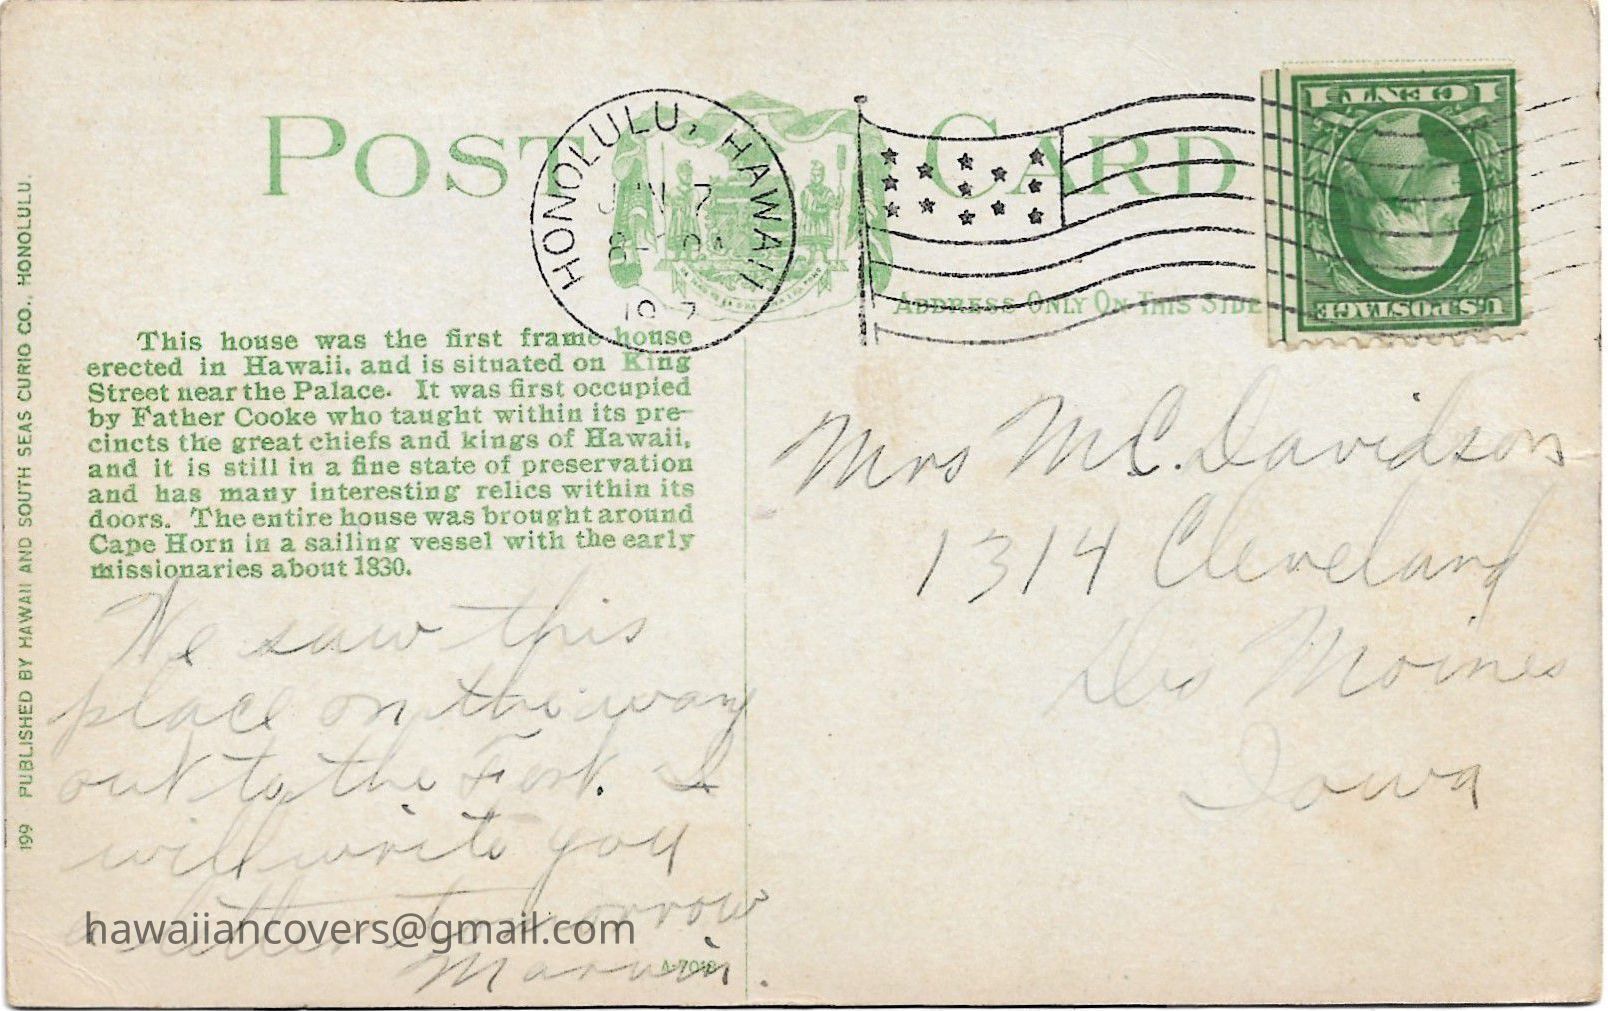 POST CARD
HONOLULU, HAWAII
JUN 7
ADDRESS ONLY ON THIS SIDE
1 CENT 1
U.S. POSTAGE
This house was the first frame house
erected in Hawaii, and is situated on King
Street near the Palace. It was first occupied
by Father Cooke who taught within its pre-
cincts the great chiefs and kings of Hawaii,
and it is still in a fine state of preservation
and has many interesting relics within its
doors. The entire house was brought around
Cape Horn in a sailing vessel with the early
missionaries about 1830.
We saw this
place on the way
out to the Fort. I
will write you
a letter tomorrow
Marvin.
Mrs M.C. Davidson
1314 Cleveland
Des Moines
Iowa
199 PUBLISHED BY HAWAII AND SOUTH SEAS CURIO CO., HONOLULU.
hawaiiancovers@gmail.com